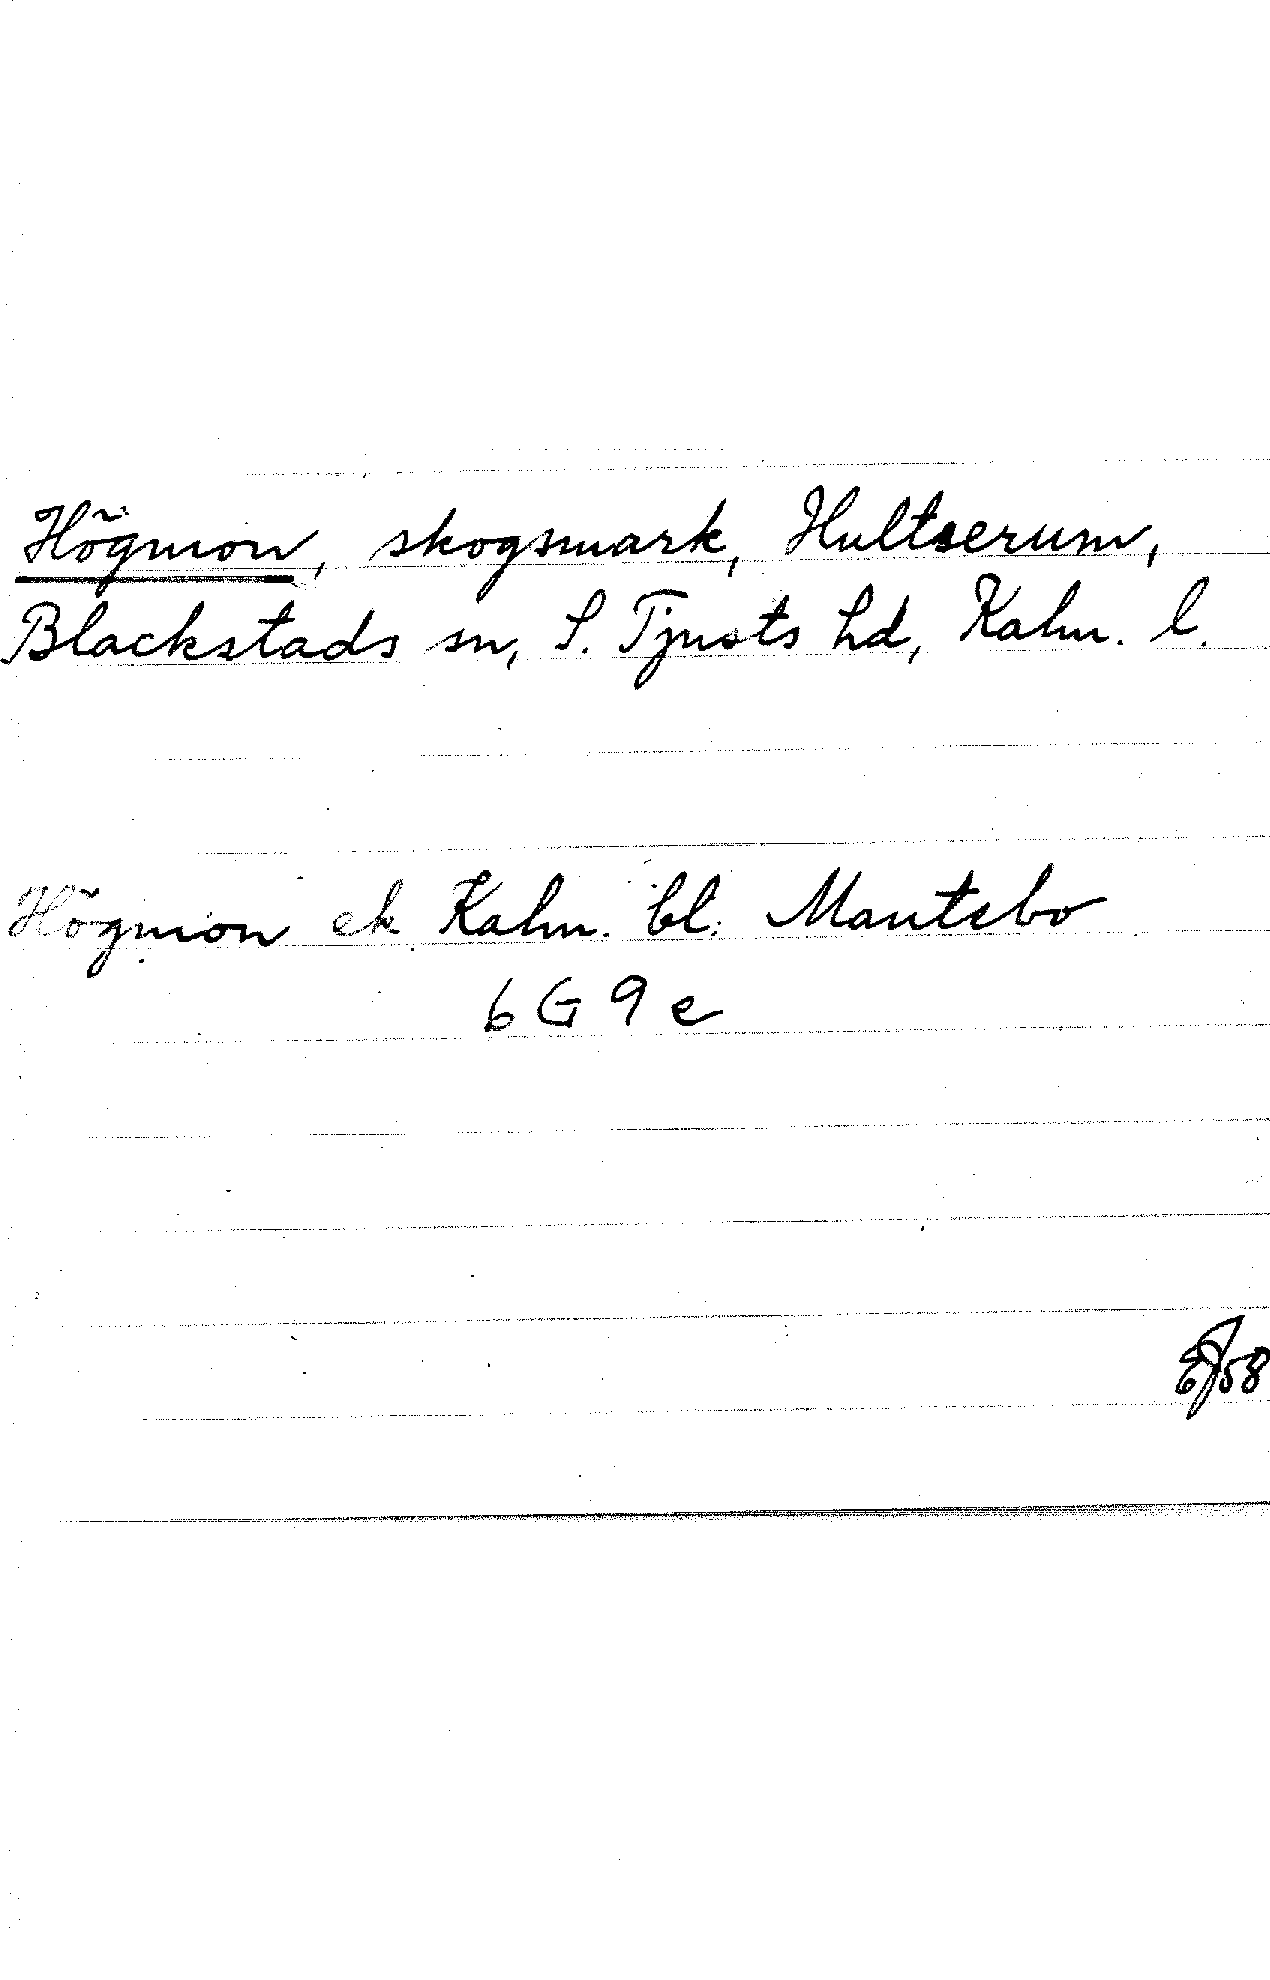 Högmon, skogsmark, Hultserum,
Blackstads sn, S. Tjusts hd, Kalm. l.
Högmon ek Kalm. bl. Mantebo
6 G 9 e